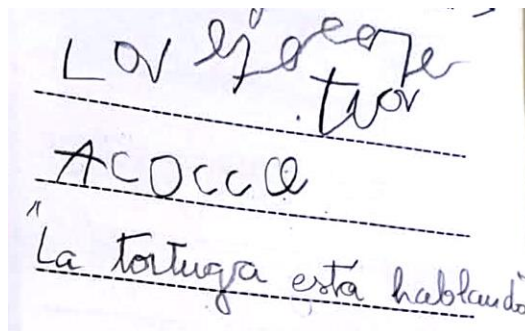 Lov
tvor
Acocca
"La tortuga está hablando"